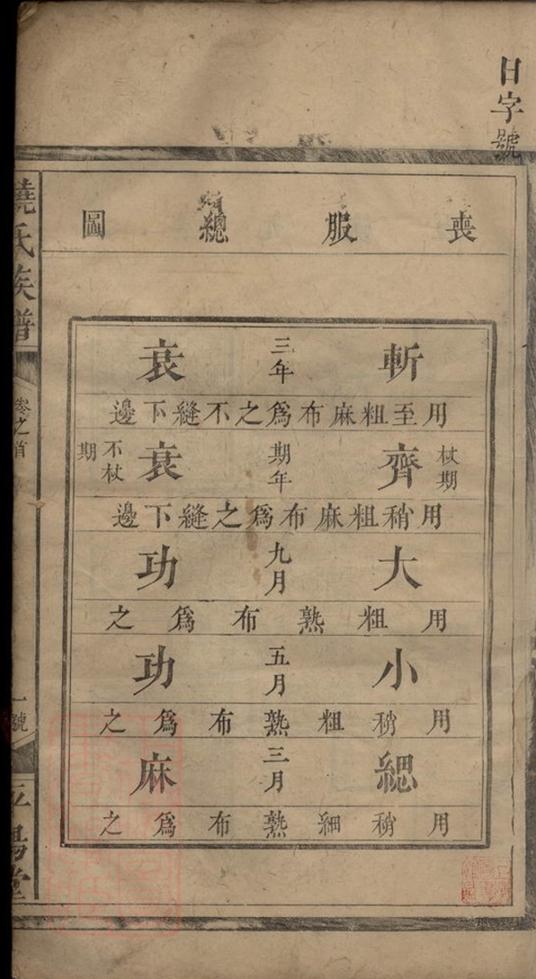 日字號
喪服總圖
斬三年衰
用至粗麻布爲之不縫下邊
杖期齊期年衰不杖期
用稍粗麻布爲之縫下邊
大九月功
用粗熟布爲之
小五月功
用稍粗熟布爲之
緦三月麻
用稍細熟布爲之
饒氏族譜
卷之首
一號